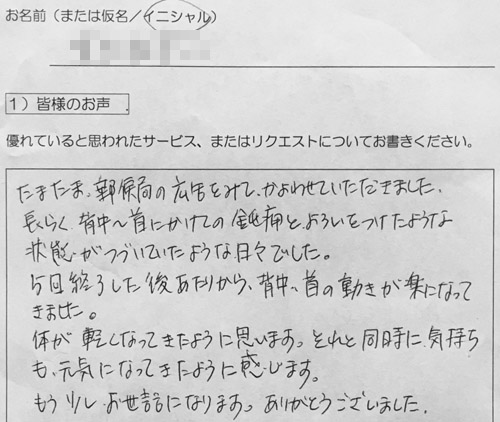 お名前（または仮名／イニシャル）
1）皆様のお声
優れていると思われたサービス、またはリクエストについてお書きください。
たまたま、郵便局の広告をみて、かよわせていただきました。
長らく、背中〜首にかけての鈍痛と、よろいをつけたような
状態がつづいていたような日々でした。
5回終了した後あたりから、背中、首の動きが楽になって
きました。
体が軽くなってきたように思います。それと同時に、気持ち
も、元気になってきたように感じます。
もう少し、お世話になります。ありがとうございました。